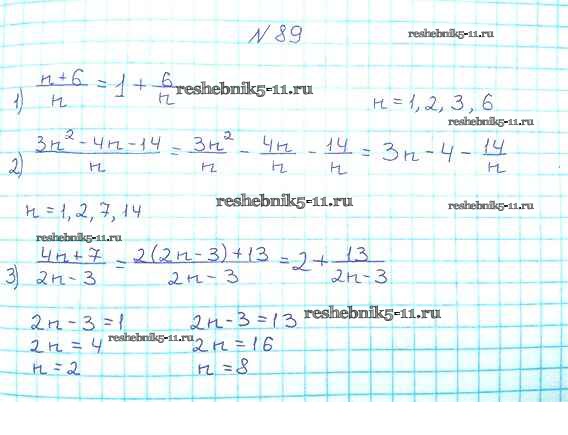 № 89 reshebnik5-11.ru
1) (n+6)/n = 1 + 6/n reshebnik5-11.ru n = 1, 2, 3, 6
reshebnik5-11.ru
2) (3n² - 4n - 14)/n = 3n²/n - 4n/n - 14/n = 3n - 4 - 14/n
n = 1, 2, 7, 14 reshebnik5-11.ru reshebnik5-11.ru
reshebnik5-11.ru
3) (4n+7)/(2n-3) = (2(2n-3)+13)/(2n-3) = 2 + 13/(2n-3)
2n - 3 = 1 2n - 3 = 13 reshebnik5-11.ru
2n = 4 reshebnik5-11.ru 2n = 16
n = 2 n = 8